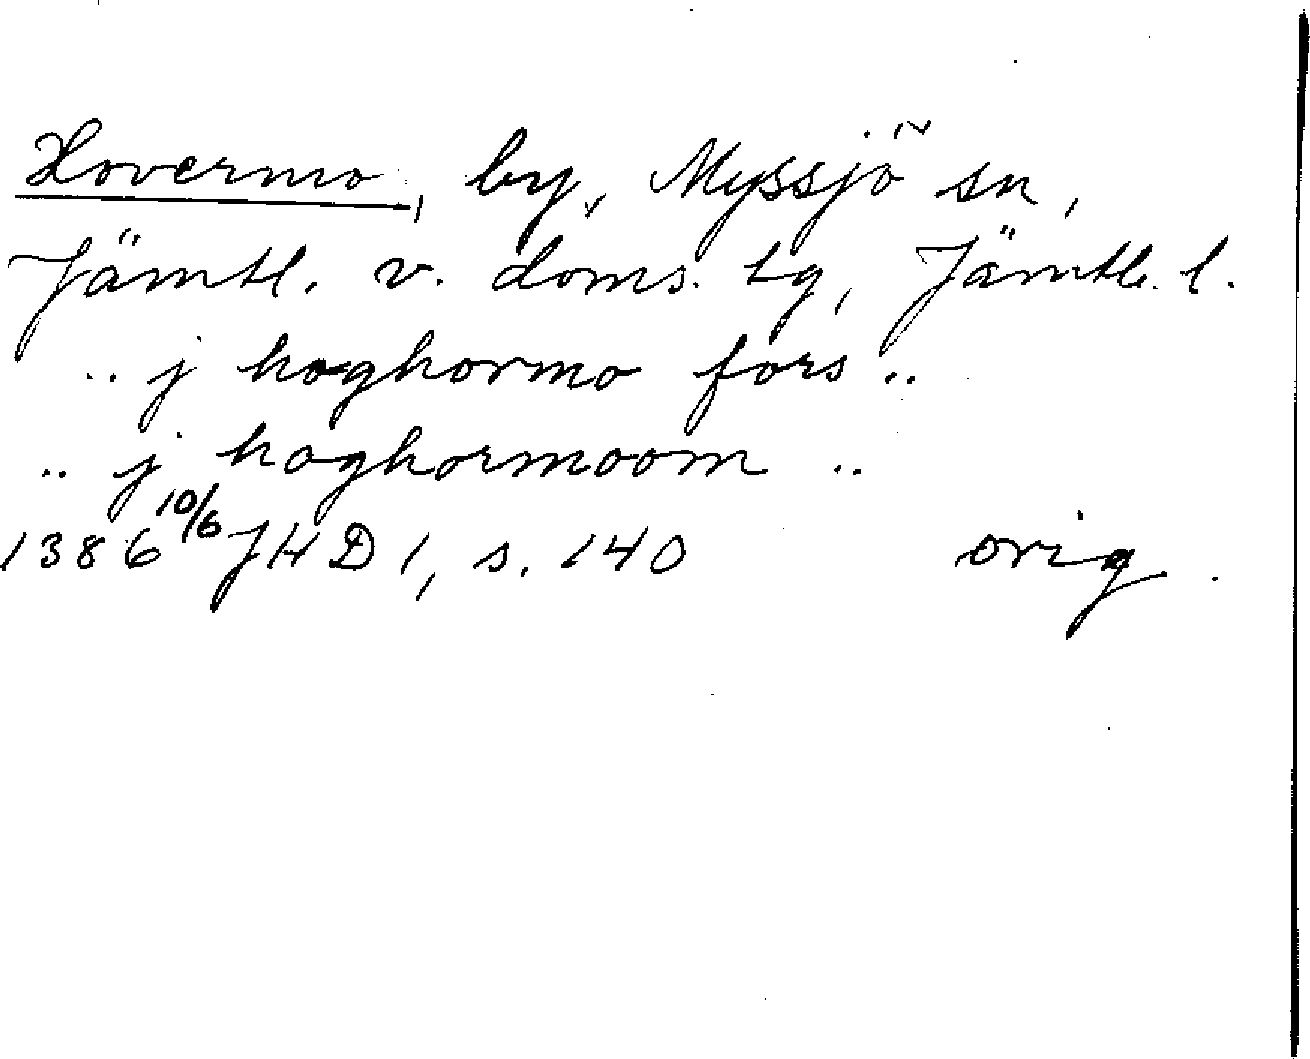 Hovermo, by, Myssjö sn,
Jämtl. v. doms. tg, Jämtl. l.
.. j hoghormo fors ..
.. j hoghormoom ..
1386 10/6 JHD 1, s. 140 orig.